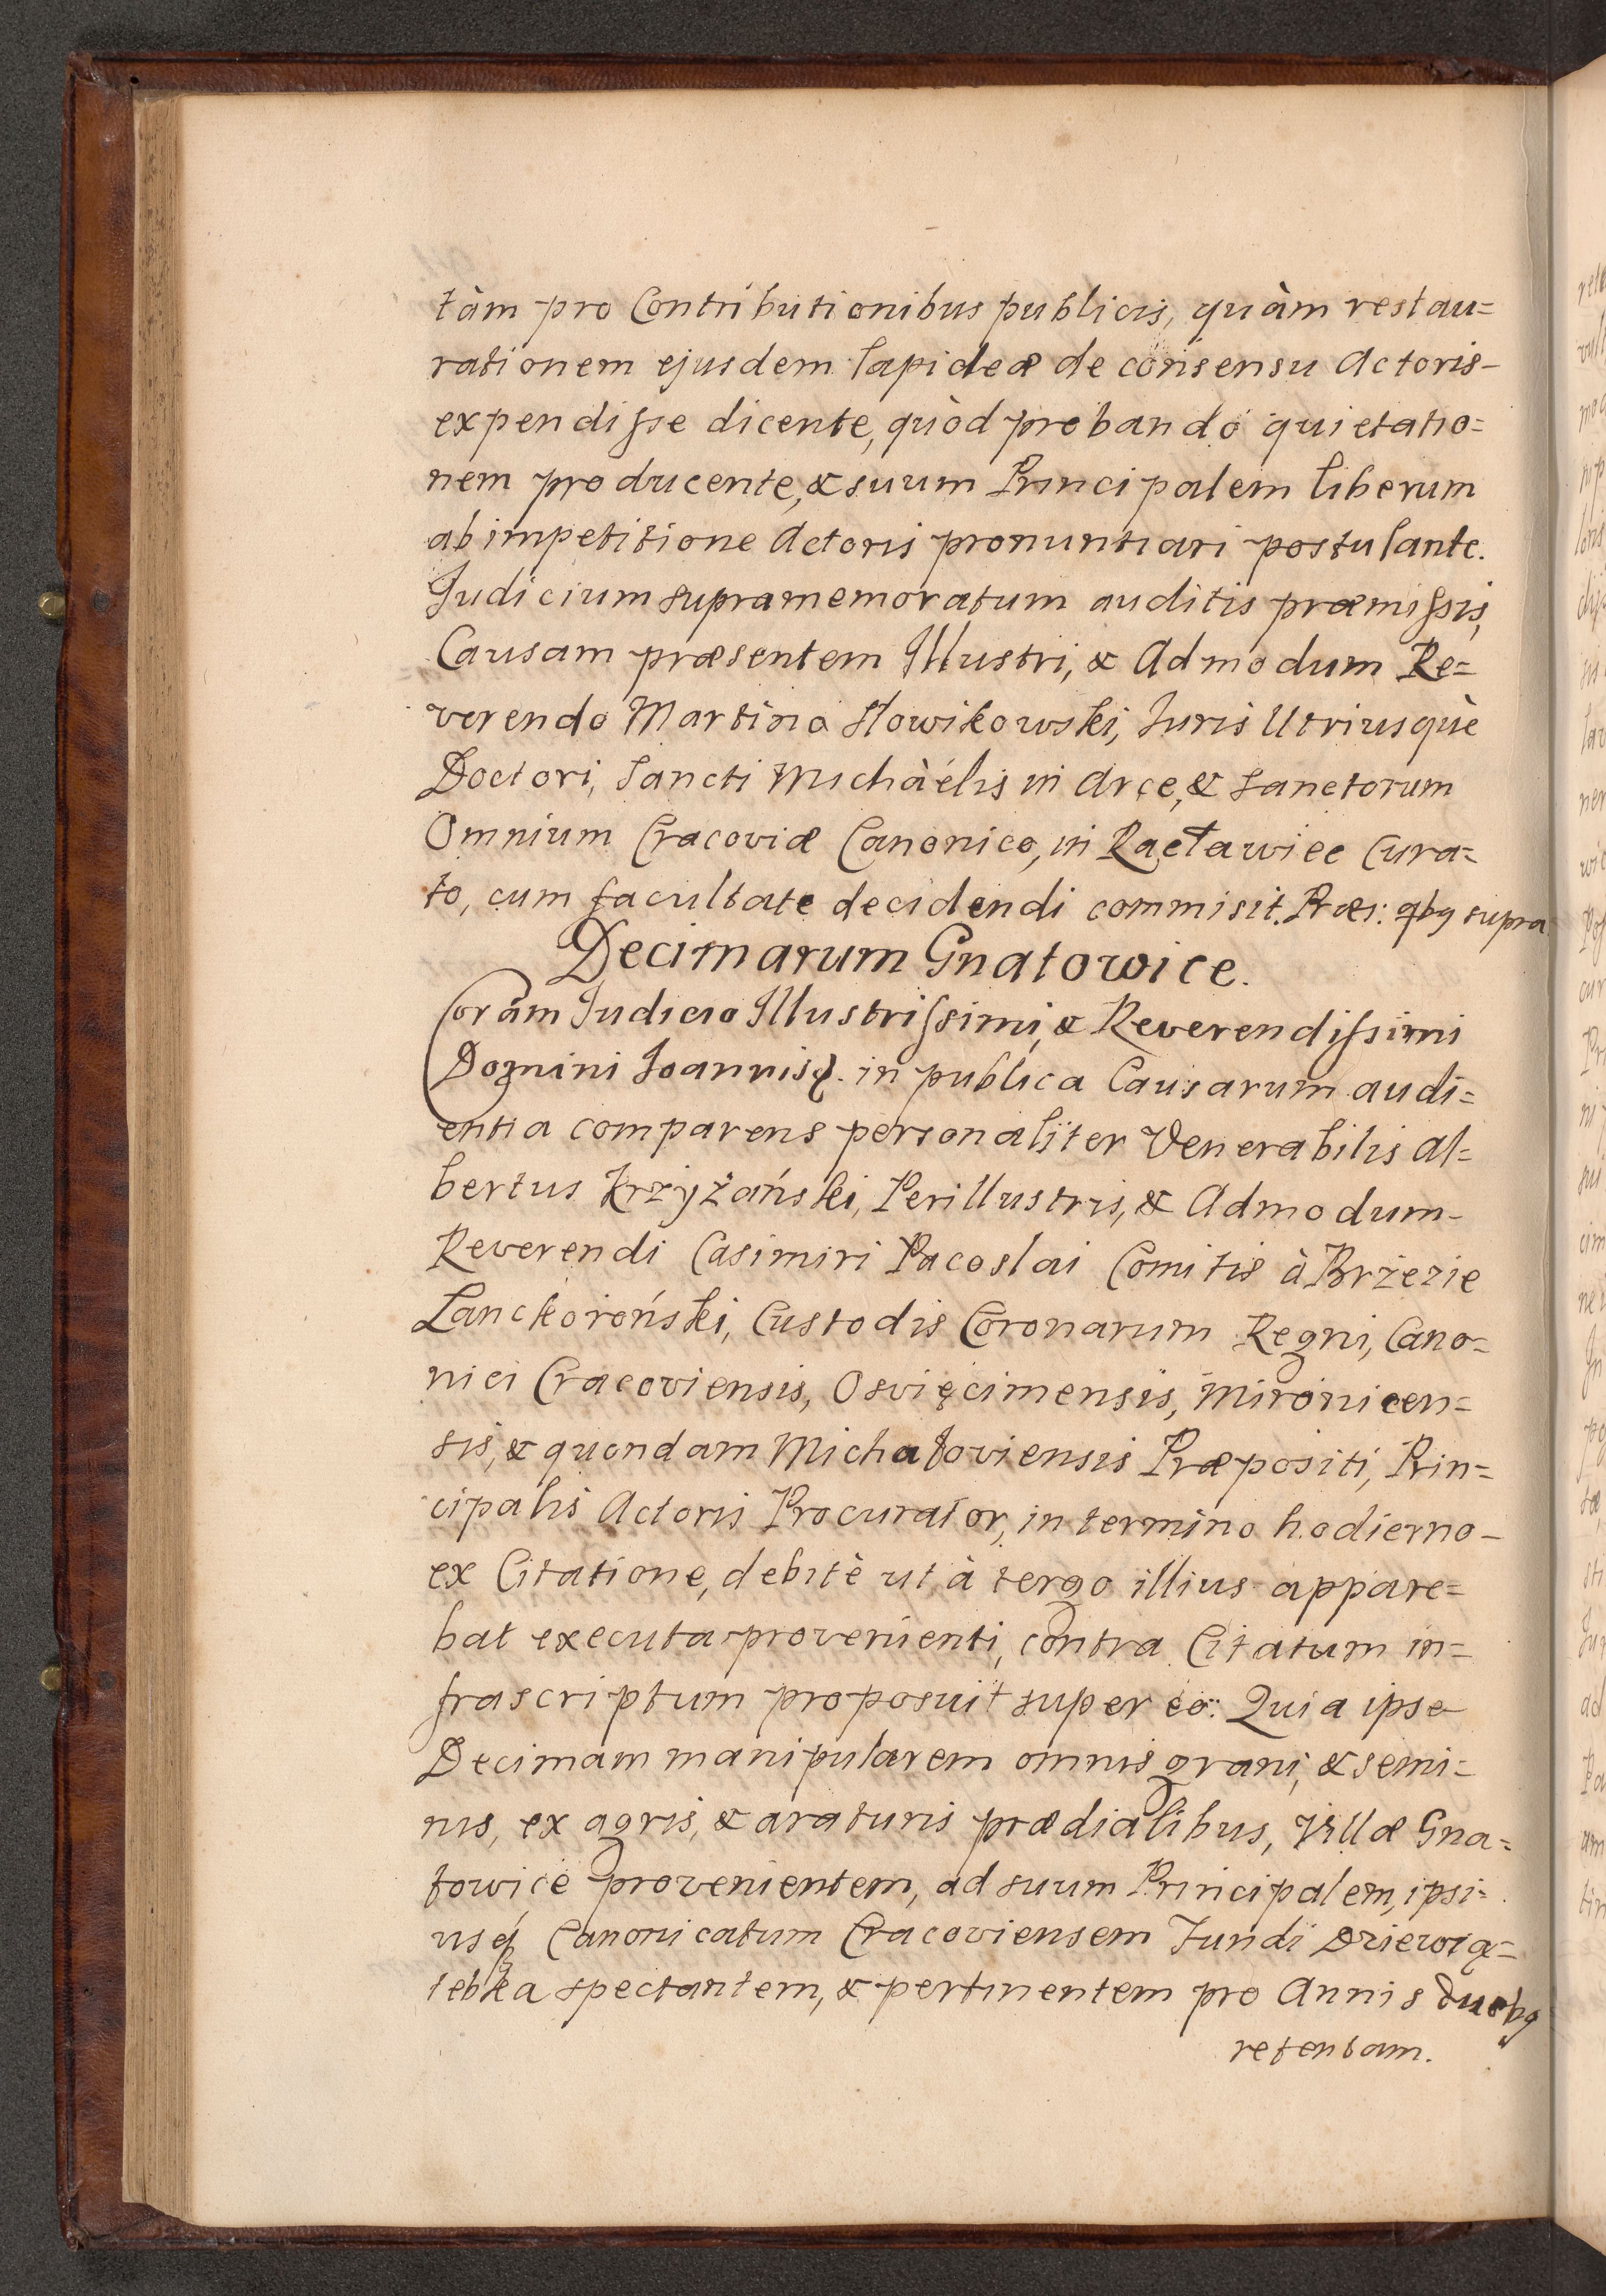 tàm pro Contributionibus publicis, quàm restau=
rationem ejusdem lapideæ de consensu Actoris
expendisse dicente, quòd probando quietatio=
nem producente, & suum Principalem liberum
ab impetitione Actoris pronuntiari postulante.
Judicium supramemoratum auditis præmissis,
Causam præsentem Illustri, & Admodum Re=
verendo Martino Słowikowski, Juris Utriusquè
Doctori, Sancti Michaëlis in Arce, & Sanctorum
Omnium Cracoviæ Canonico, in Racławice Cura=
to, cum facultate decidendi commisit. Præs: qbq supra
Decimarum Gnatowice.
Coràm Judicio Illustrissimi, & Reverendissimi
Domini Joannis. in publica Causarum audi=
entia comparens personaliter Venerabilis Al=
bertus Krzyżański, Perillustris, & Admodum
Reverendi Casimiri Pacoslai Comitis à Brzezie
Lanckoroński, Custodis Coronarum Regni, Cano=
nici Cracoviensis, Osvięcimensis, Mironicen=
sis, & quondam Michałoviensis Præpositi, Prin=
cipalis Actoris Procurator, in termino hodierno
ex Citatione, debitè ut à tergo illius appare=
bat executa provenienti, contra Citatum in=
frascriptum proposuit super eo: Quia ipse
Decimam manipularem omnis grani, & semi=
nis, ex agris, & araturis prædialibus, Villæ Gna=
towice provenientem, ad suum Principalem, ipsi=
usq Canonicatum Cracoviensem Fundi Dziewią=
tebka spectantem, & pertinentem pro Annis duobq
retentam.